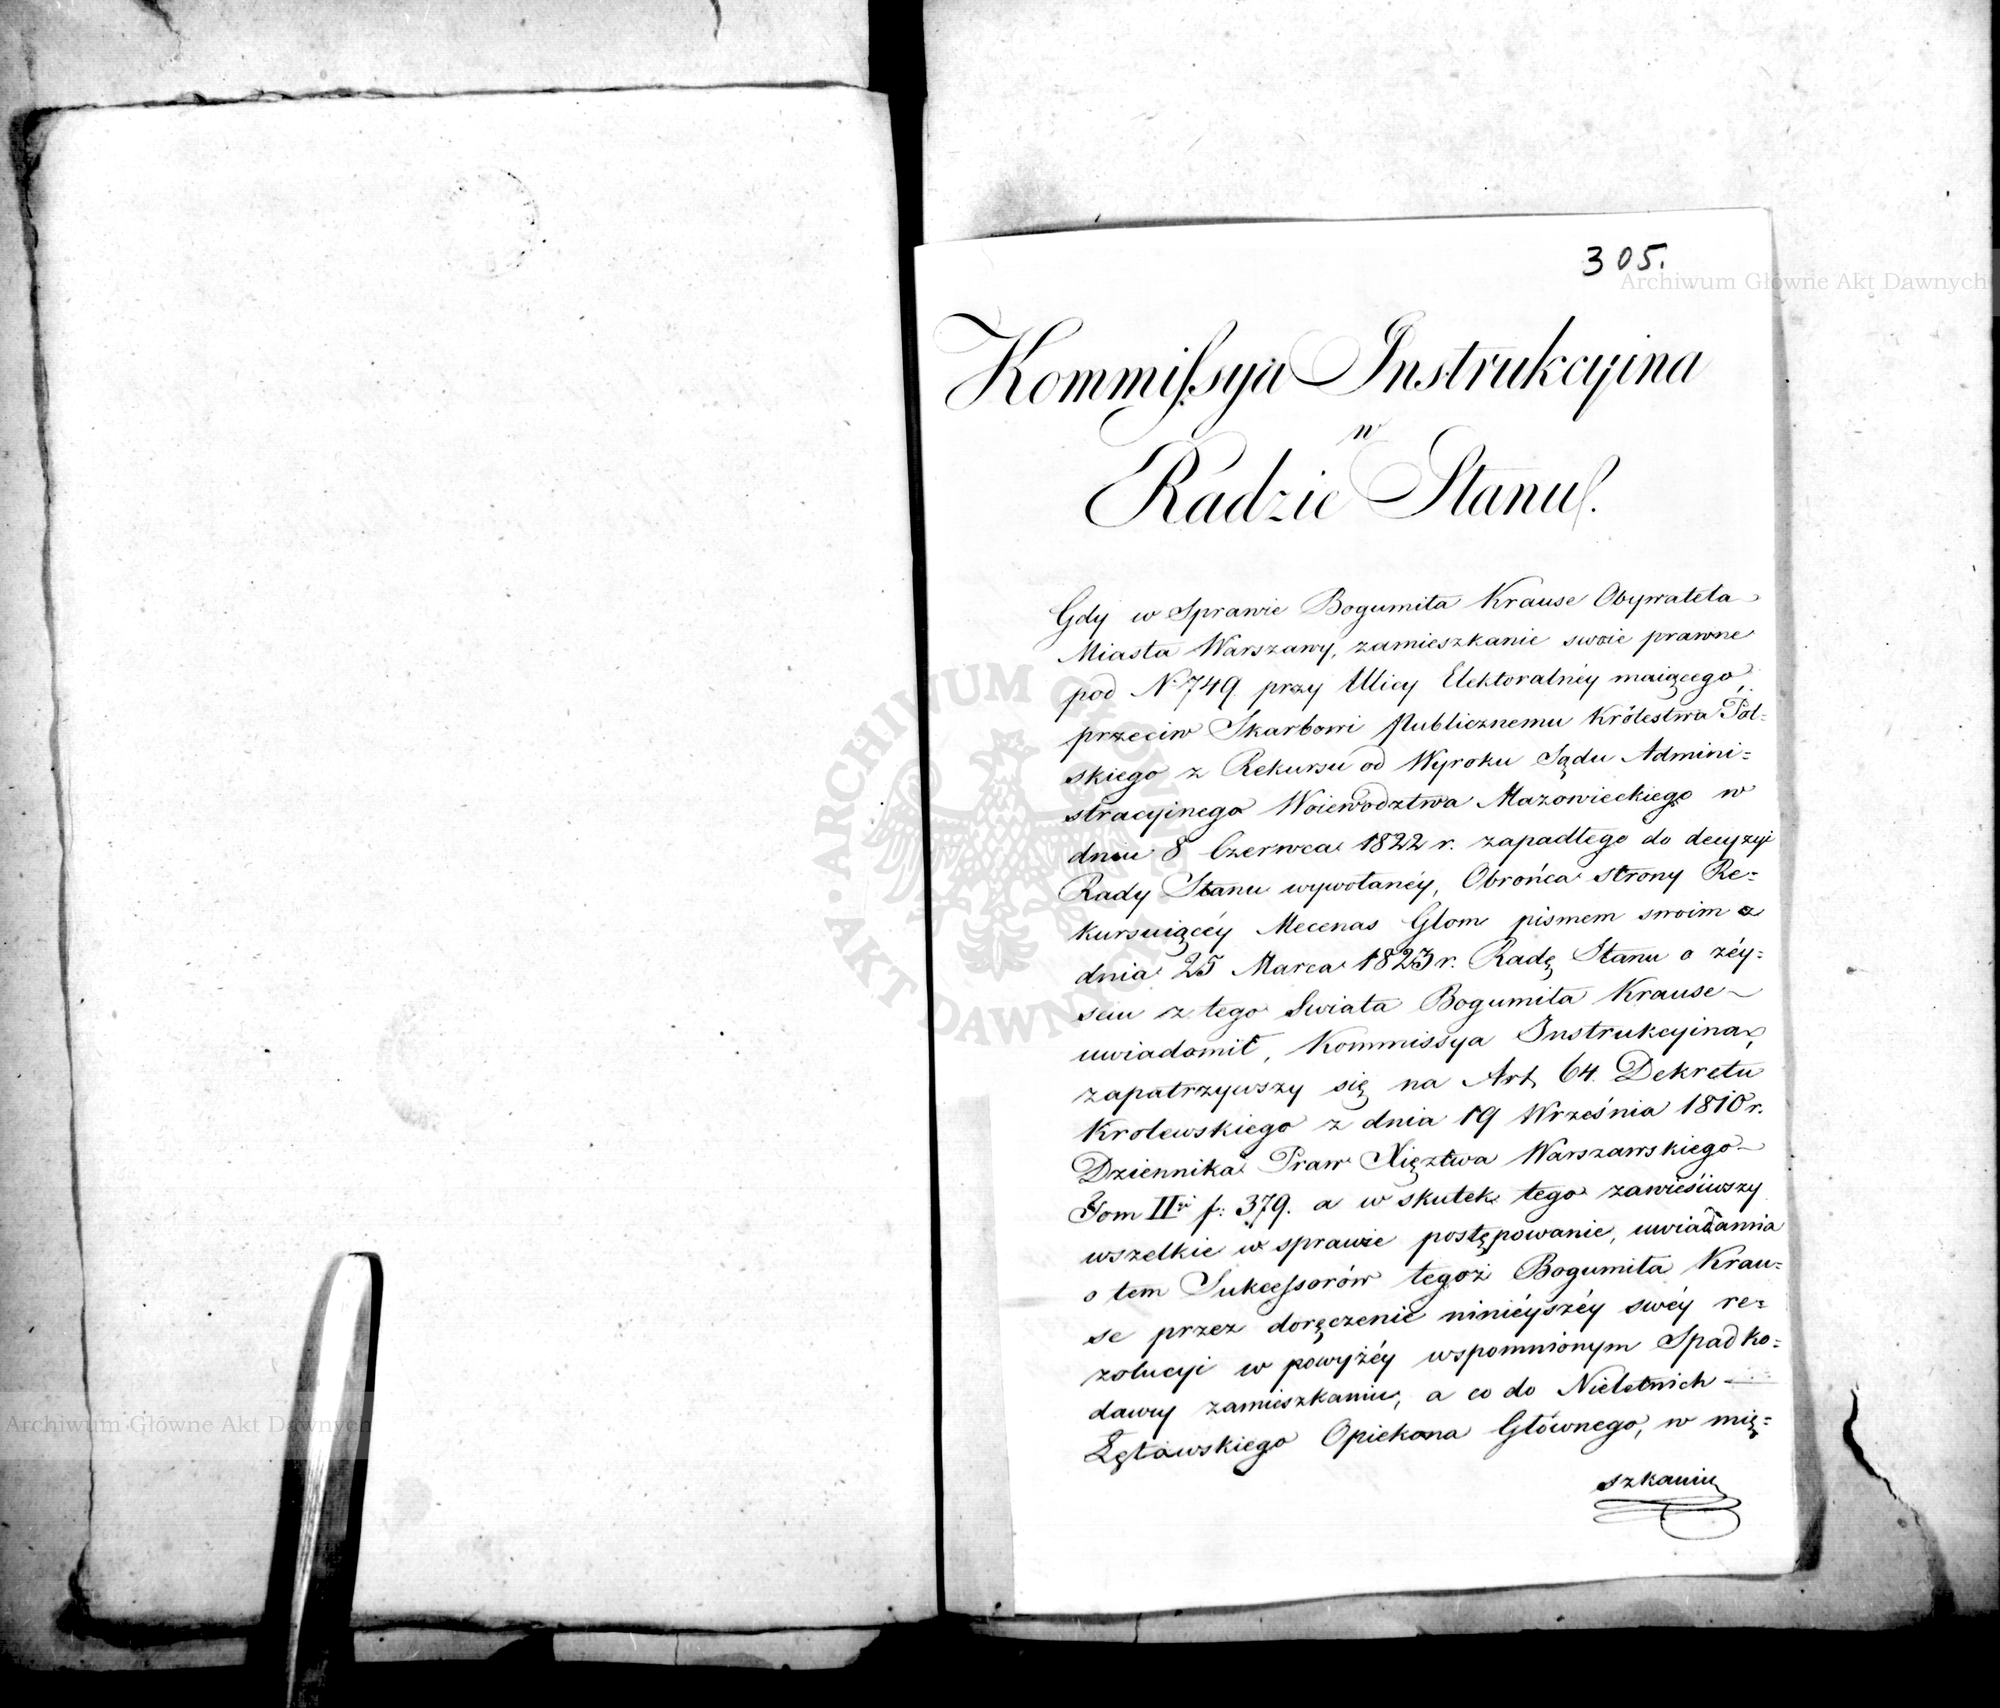 305.
Kommissya Instrukcyina
w
Radzie Stanu.
Gdy w Sprawie Bogumiła Krause Obywatela
Miasta Warszawy, zamieszkanie swoie prawne
pod N. 749. przy Ulicy Elektoralnéy maiącego,
przeciw Skarbowi Publicznemu Królestwa Pol=
skiego z Rekursu od Wyroku Sądu Admini=
stracyinego Woiewództwa Mazowieckiego w
dniu 8 Czerwca 1822 r. zapadłego do decyzyi
Rady Stanu wywołanéy, Obrońca strony Re=
kursuiącéy Mecenas Glom pismem swoim z
dnia 25 Marca 1823 r. Radę Stanu o zéy=
sciu z tego Swiata Bogumiła Krause
uwiadomił, Kommissya Instrukcyina,
zapatrzywszy się na Art. 64. Dekretu
Krolewskiego z dnia 19 Września 1810 r.
Dziennika Praw Xięztwa Warszawskiego
Tom II f: 379. a w skutek tego zawiesiwszy
wszelkie w sprawie postępowanie, uwiadamia
o tem Sukcessorów tegoż Bogumiła Krau=
se przez doręczenie niniéyszéy swéy re=
zolucyi w powyżéy wspomnionym Spadko=
dawcy zamieszkaniu, a co do Nieletnich
Łętowskiego Opiekona Głównego, w mię=
szkaniu
Archiwum Główne Akt Dawnych
Archiwum Główne Akt Dawnych
· ARCHIWUM GŁÓWNE · AKT DAWNYCH